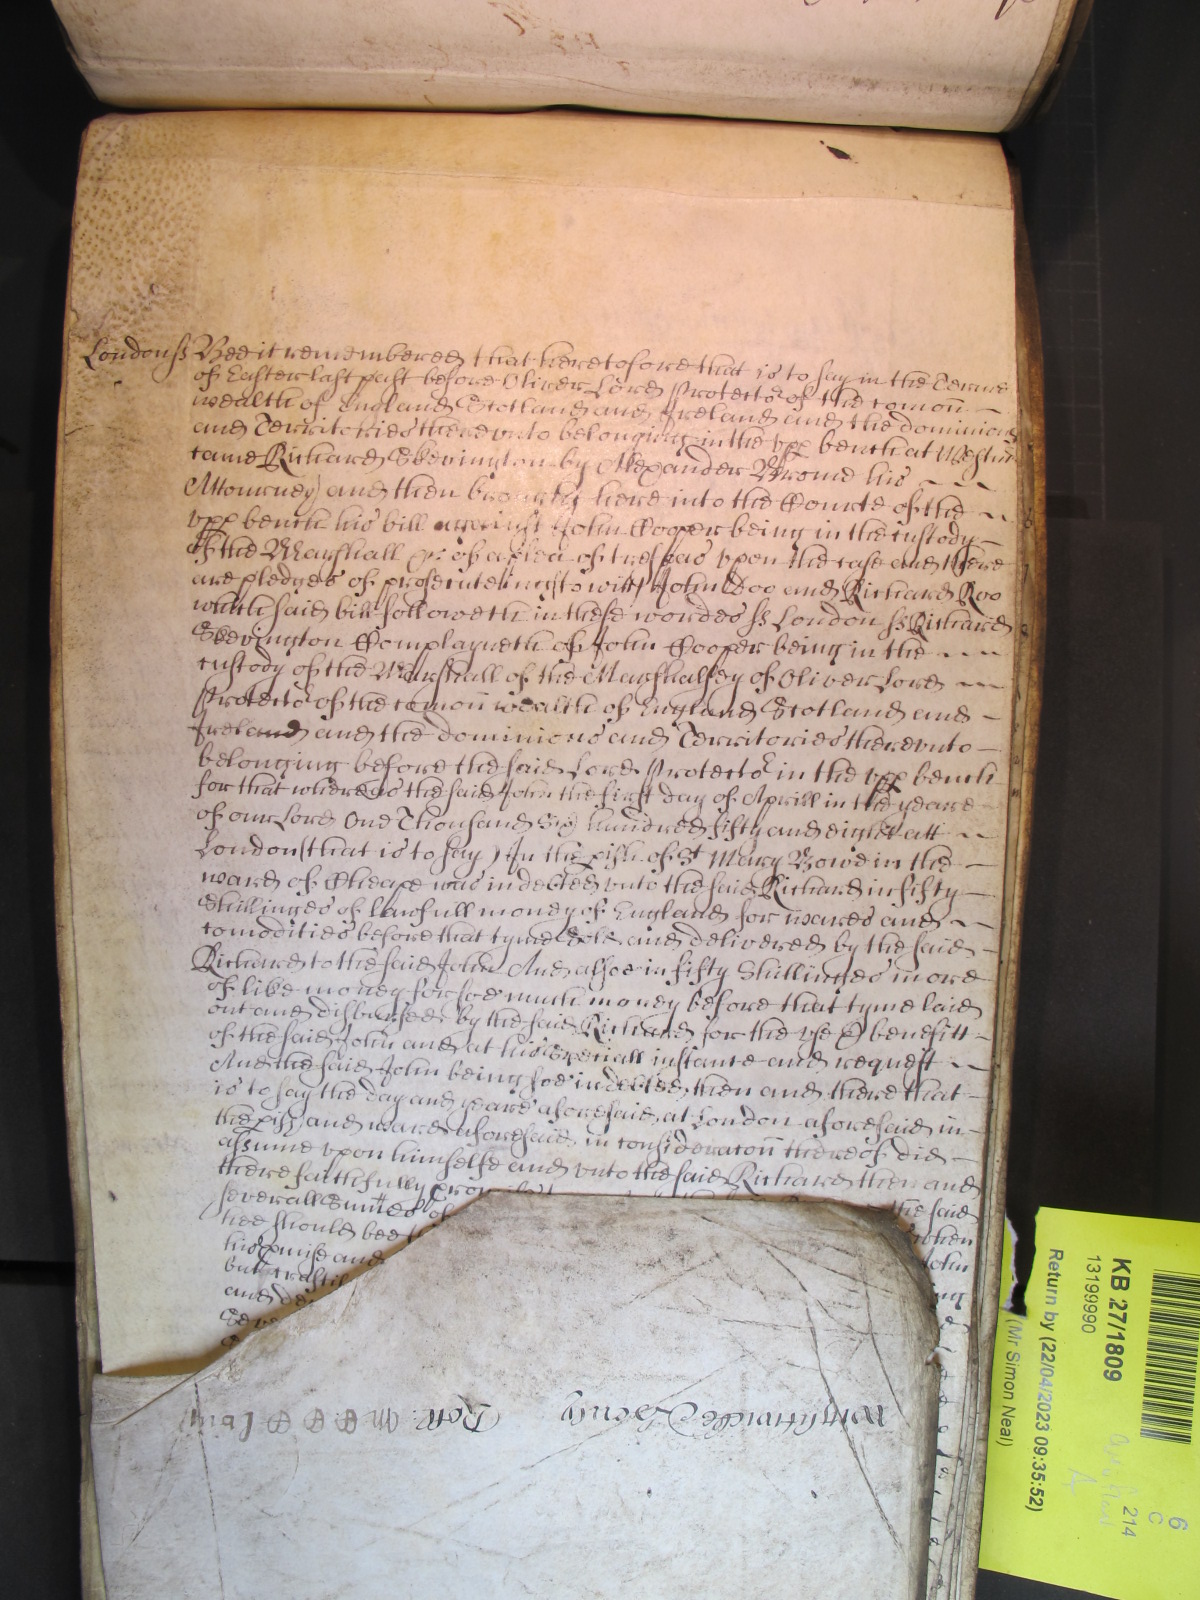 London ss Bee it remembered that heretofore that is to say in the Terme
of Easter last past before Oliver Lord Protector of the comon
wealth of England Scotland and Ireland and the dominions
and Territories thereunto belonging in the upp bench at Westm
came Richard Skevington by Alexander Brome his
Attourney and then brought here into the Courte of the
upp bench his bill against John Cooper being in the custody
of the Marshall &c of a plea of trespas upon the case and there
are pledges of prosecuteing to witt John Doo and Richard Roo
which said bill followeth in these wordes ss London ss Richard
Skevington Complayneth of John Cooper being in the
custody of the Marshall of the Marshalsey of Oliver Lord
Protector of the comon wealth of England Scotland and
Ireland and the dominions and Territories thereunto
belonging before the said Lord Protector in the upp bench
for that whereas the said John the first day of Aprill in the yeare
of our Lord One Thousand Six hundred fifty and eight att
London (that is to say) in the pish of St Mary Bowe in the
ward of Cheape was indebted unto the said Richard in fifty
Shillinges of lawfull money of England for wares and
comodities before that tyme sold and delivered by the said
Richard to the said John And alsoe in fifty Shillinges more
of like money for soe much money before that tyme laid
out and disbursed by the said Richard for the use & benefitt
of the said John and at his speciall instance and request
And the said John being soe indebted then and there that
is to say the day and yeare aforesaid at London aforesaid in
the pish and ward aforesaid in consideracon thereof did
assume upon himselfe and unto the said Richard then and
there faithfully the said
severall Sumes of when
hee should bee John
his pmise and
but
and
KB 27/1809
13199990
Return by (22/04/2023 09:35:52)
(Mr Simon Neal)
6
C
214